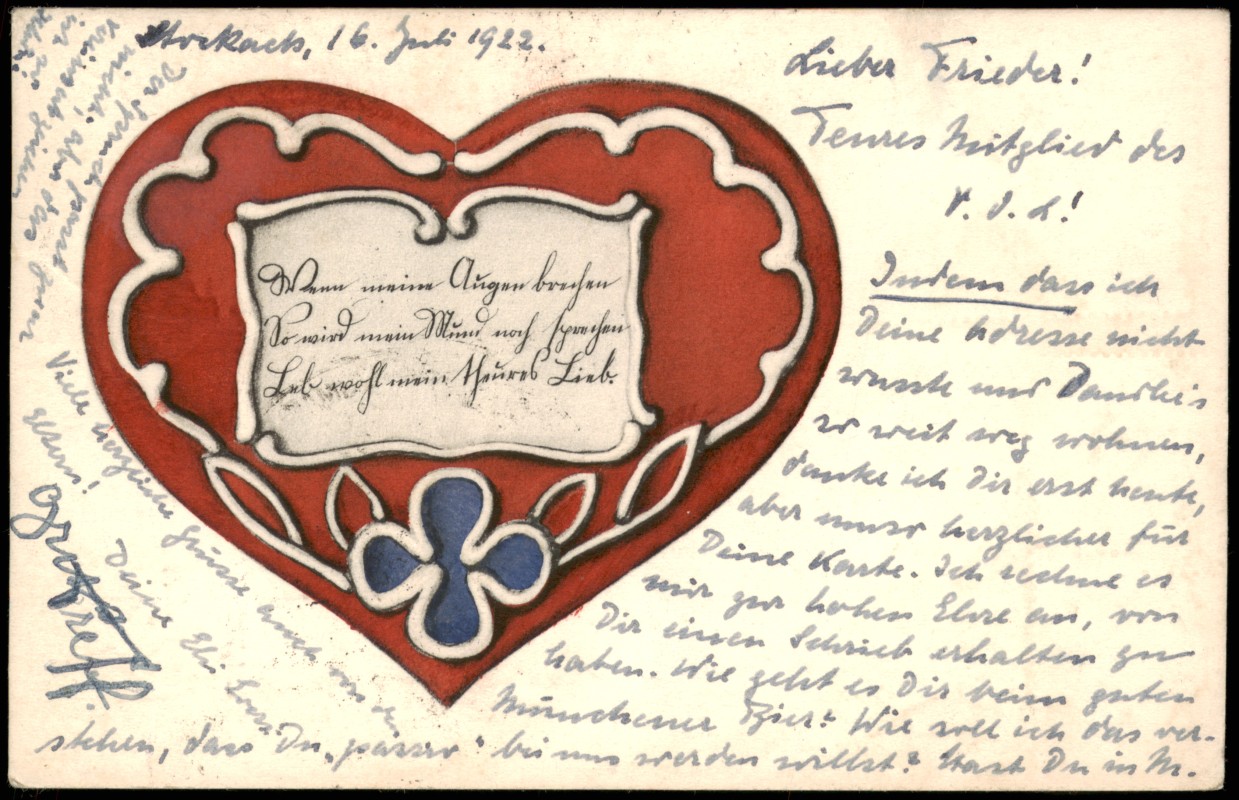 Stockach, 16. Juli 1922.
Lieber Frieder!
Teures Mitglied des
V. d. L!
Indem dass ich
Deine Adresse nicht
wusste und Dandleis
so weit weg wohnen,
danke ich Dir erst heute,
aber umso herzlicher für
Deine Karte. Ich rechne es
mir zur hohen Ehre an, von
Dir einen Schrieb erhalten zu
haben. Wie geht es Dir beim guten
Münchener Bier? Wie soll ich das ver-
stehen, dass Du „passiv“ bei uns werden willst? Hast Du in M.
Wenn meine Augen brechen
So wird mein Mund noch sprechen
Leb wohl mein theures Lieb.
Der Spruch passt
nicht, aber das Herz
Viele herzliche Grüsse auch von den
Eltern!
Deine Elis